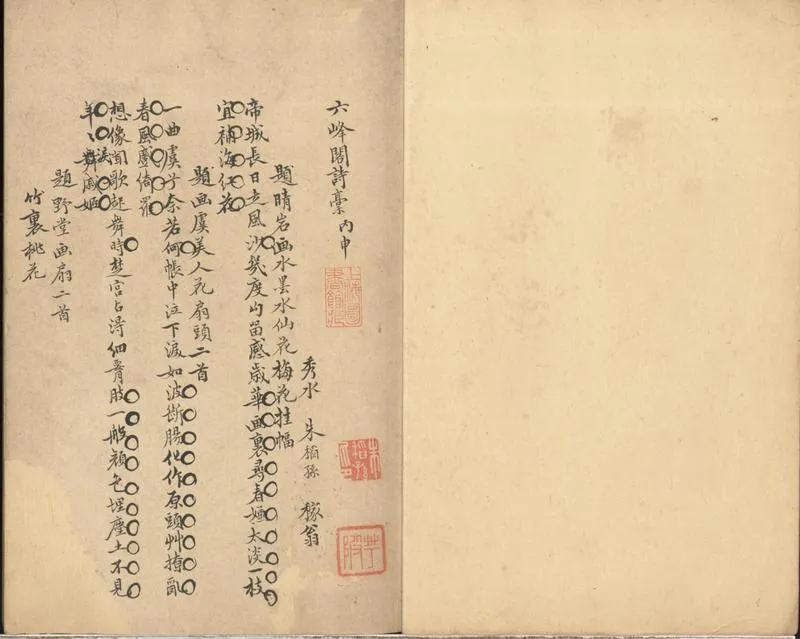 六峰閣詩稾 丙申
上海圖書館藏
秀水 朱稻孫 稼翁
題晴岩画水墨水仙花梅花挂幅
帝城長日走風沙幾度勾留感歲華画裏尋春嫌太淡一枝
宜補海紅花
題画虞美人花扇頭二首
一曲虞兮奈若何帳中泣下淚如波斷腸化作原頭艸撩亂
春風蹙綺羅
想像聞歌起舞時楚宮占得細腰肢一般顔色埋塵土不見
舞戚姬
題野堂画扇二首
竹裏桃花